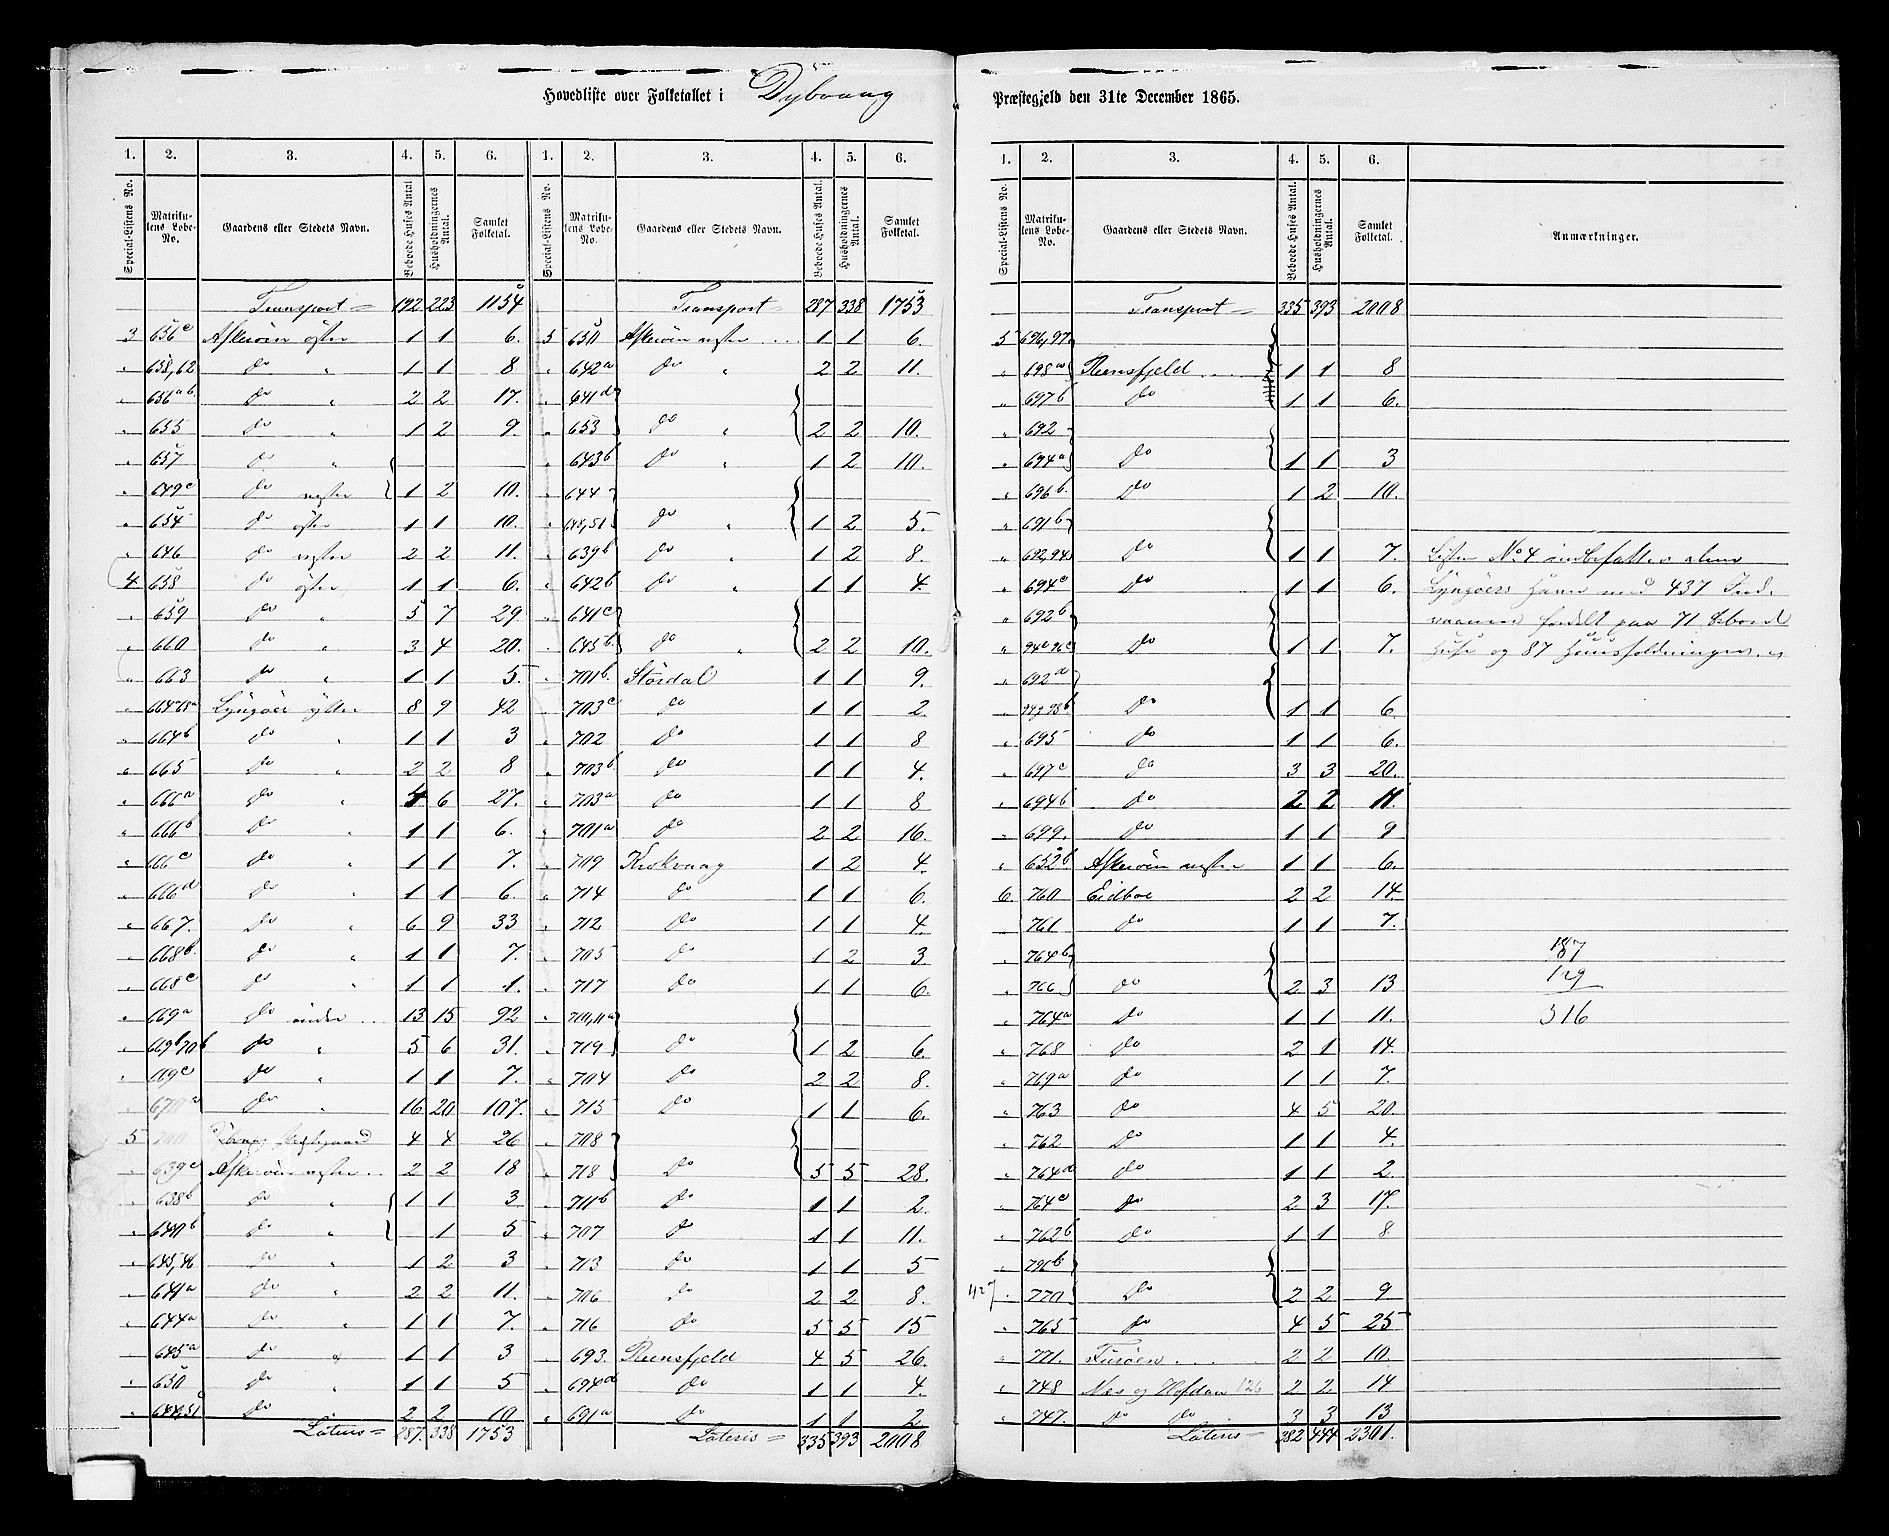 Hovedliste over Folketallet i Dybvaag Præstegjeld den 31te December 1865.
1. 2. 3. 4. 5. 6. 1. 2. 3. 4. 5. 6.
Special-Listens No. Matrikulens Løbe-No. Gaardens eller Stedets Navn. Beboede Huses Antal Husholdningernes Antal. Samlet Folketal. Special-Listens No. Matrikulens Løbe-No. Gaardens eller Stedets Navn. Beboede Huses Antal. Husholdningernes Antal. Samlet Folketal.
Transport = 192 223 1154
3 656c Askerøen østre 1 1 6.
" 658,62 do " 1 1 8
" 656ab do " 2 2 17.
" 655 do " 1 2 9.
" 657 do "
" 649c do vestre 1 2 10.
" 654 do østre 1 1 10.
" 646 do vestre 2 2 11.
4 658 do østre 1 1 6.
" 659 do " 5 7 29.
" 660 do " 3 4 20.
" 663 do " 1 1 5.
" Lyngøer ydre 8 9 42
" 664b do " 1 1 3
" 665 do " 2 2 8
" 666a do " 6 27.
" 666b do " 1 1 6.
" 666c do " 1 1 7.
" 666d do " 1 1 6.
" 667. do " 6 9 33
" 668b. do " 1 1 7.
" 668c do " 1 1 1.
" 669a do indre 13 15 92
" 669b70b do " 5 6 31.
" 669c do " 1 1 7.
" 670a do " 16 20 107.
5 700 Præstegaard 4 4 26
" 639c Askerøen vestre 2 2 18
" 638b do " 1 1 3
" 640b do " 1 5
" 645,46 do 1 2 3
" 641a do " 2 2 11.
" 644a do " 1 1 7.
645a do " 1 1 3
" 650 do " 1 1 5
" 644,51 do " 2 2 10
Lateris = 287. 338 1753
Transport = 287 338 1753
5 650 Askerøen vestre 1 1 6.
" 642a do " 2 2 11.
" 641d
" 653 do " 2 2 10.
643b do " 1 2 10.
" 644
" 645,51 do " 1 2 5.
" 639b do " 1 2 8.
" 642b do " 1 1 4.
" 641c
" 645b. do " 2 2 10.
" 701b. Stordal 1 1 9.
" 703c do 1 1 2.
" 702 do 1 1 8
" 703b. do 1 1 4.
" 703a do 1 1 8
" 701a do 2 2 16.
" 709 Krokvaag 1 2 4.
" 714 do 1 1 6.
" 712 do 1 1 4.
" 705 do 1 2 3.
" 717 do 1 1 6.
" 710,11a
" 719 do 1 2 6.
" 704 do 2 2 8.
" 715 do 1 1 6.
" 708
" 718 do 5 5 28.
" 711b do 1 1 2.
" 707 do 1 1 11.
" 713 do 1 1 5
" 706 do 2 2 8.
" 716 do 5 5 15
693. Reensfjeld 4 5 26.
" 694d do 1 1 4.
" 691a do 1 1 2.
Lateris = 335 393 2008
1. 2. 3. 4. 5. 6.
Special-Listens No. Matrikulens Løbe-No. Gaardens eller Stedets Navn. Beboede Huses Antal. Husholdningernes Antal. Samlet Folketal. Anmærkninger.
Transport = 335 393 2008
5 696,97
" 698a Reensfjeld 1 1 8
" 697b do 1 1 6.
" 692
" 694a do 1 1 3
" 696b. do 1 2 10.
" 691b
" 692,94 do 1 1 7.
" 694c do 1 1 6.
" 692b
" 94c 96c do 1 1 7.
" 692d
" do 1 1 6.
" 695 do 1 1 6.
" 697c do 3 3 20.
" 694b do 2 2 11.
" 699. do 1 1 9
" 652b Askerøen vestre 1 1 6.
6. 760 Eidboe 2 2 14.
" 761 do 1 1 7.
" 764b
" 766 do 2 3 13
" 764a do 1 1 11.
" 768 do 2 1 14.
" 769a do 1 1 7.
" 763 do 4 5 20.
" 762 do 1 1 4.
" 764d do 1 1 2.
" 764c do 2 3 17.
" 762b do 1 1 8
" 796b.
427 " 770 do 2 2 9
" 765 do 4 5 25
" 771. Furøen 2 2 10.
" 748 Næs og Hofdan 126 2 2 14
" 747. do do 3 3 13
Lateris = 382 444 2301.
Listen No 4 indbefatter alene
Lyngøers Havn med 437 Ind-
vaanere fordelt paa 71 beboede
Huse og 87 Huusholdninger.
187
129
316